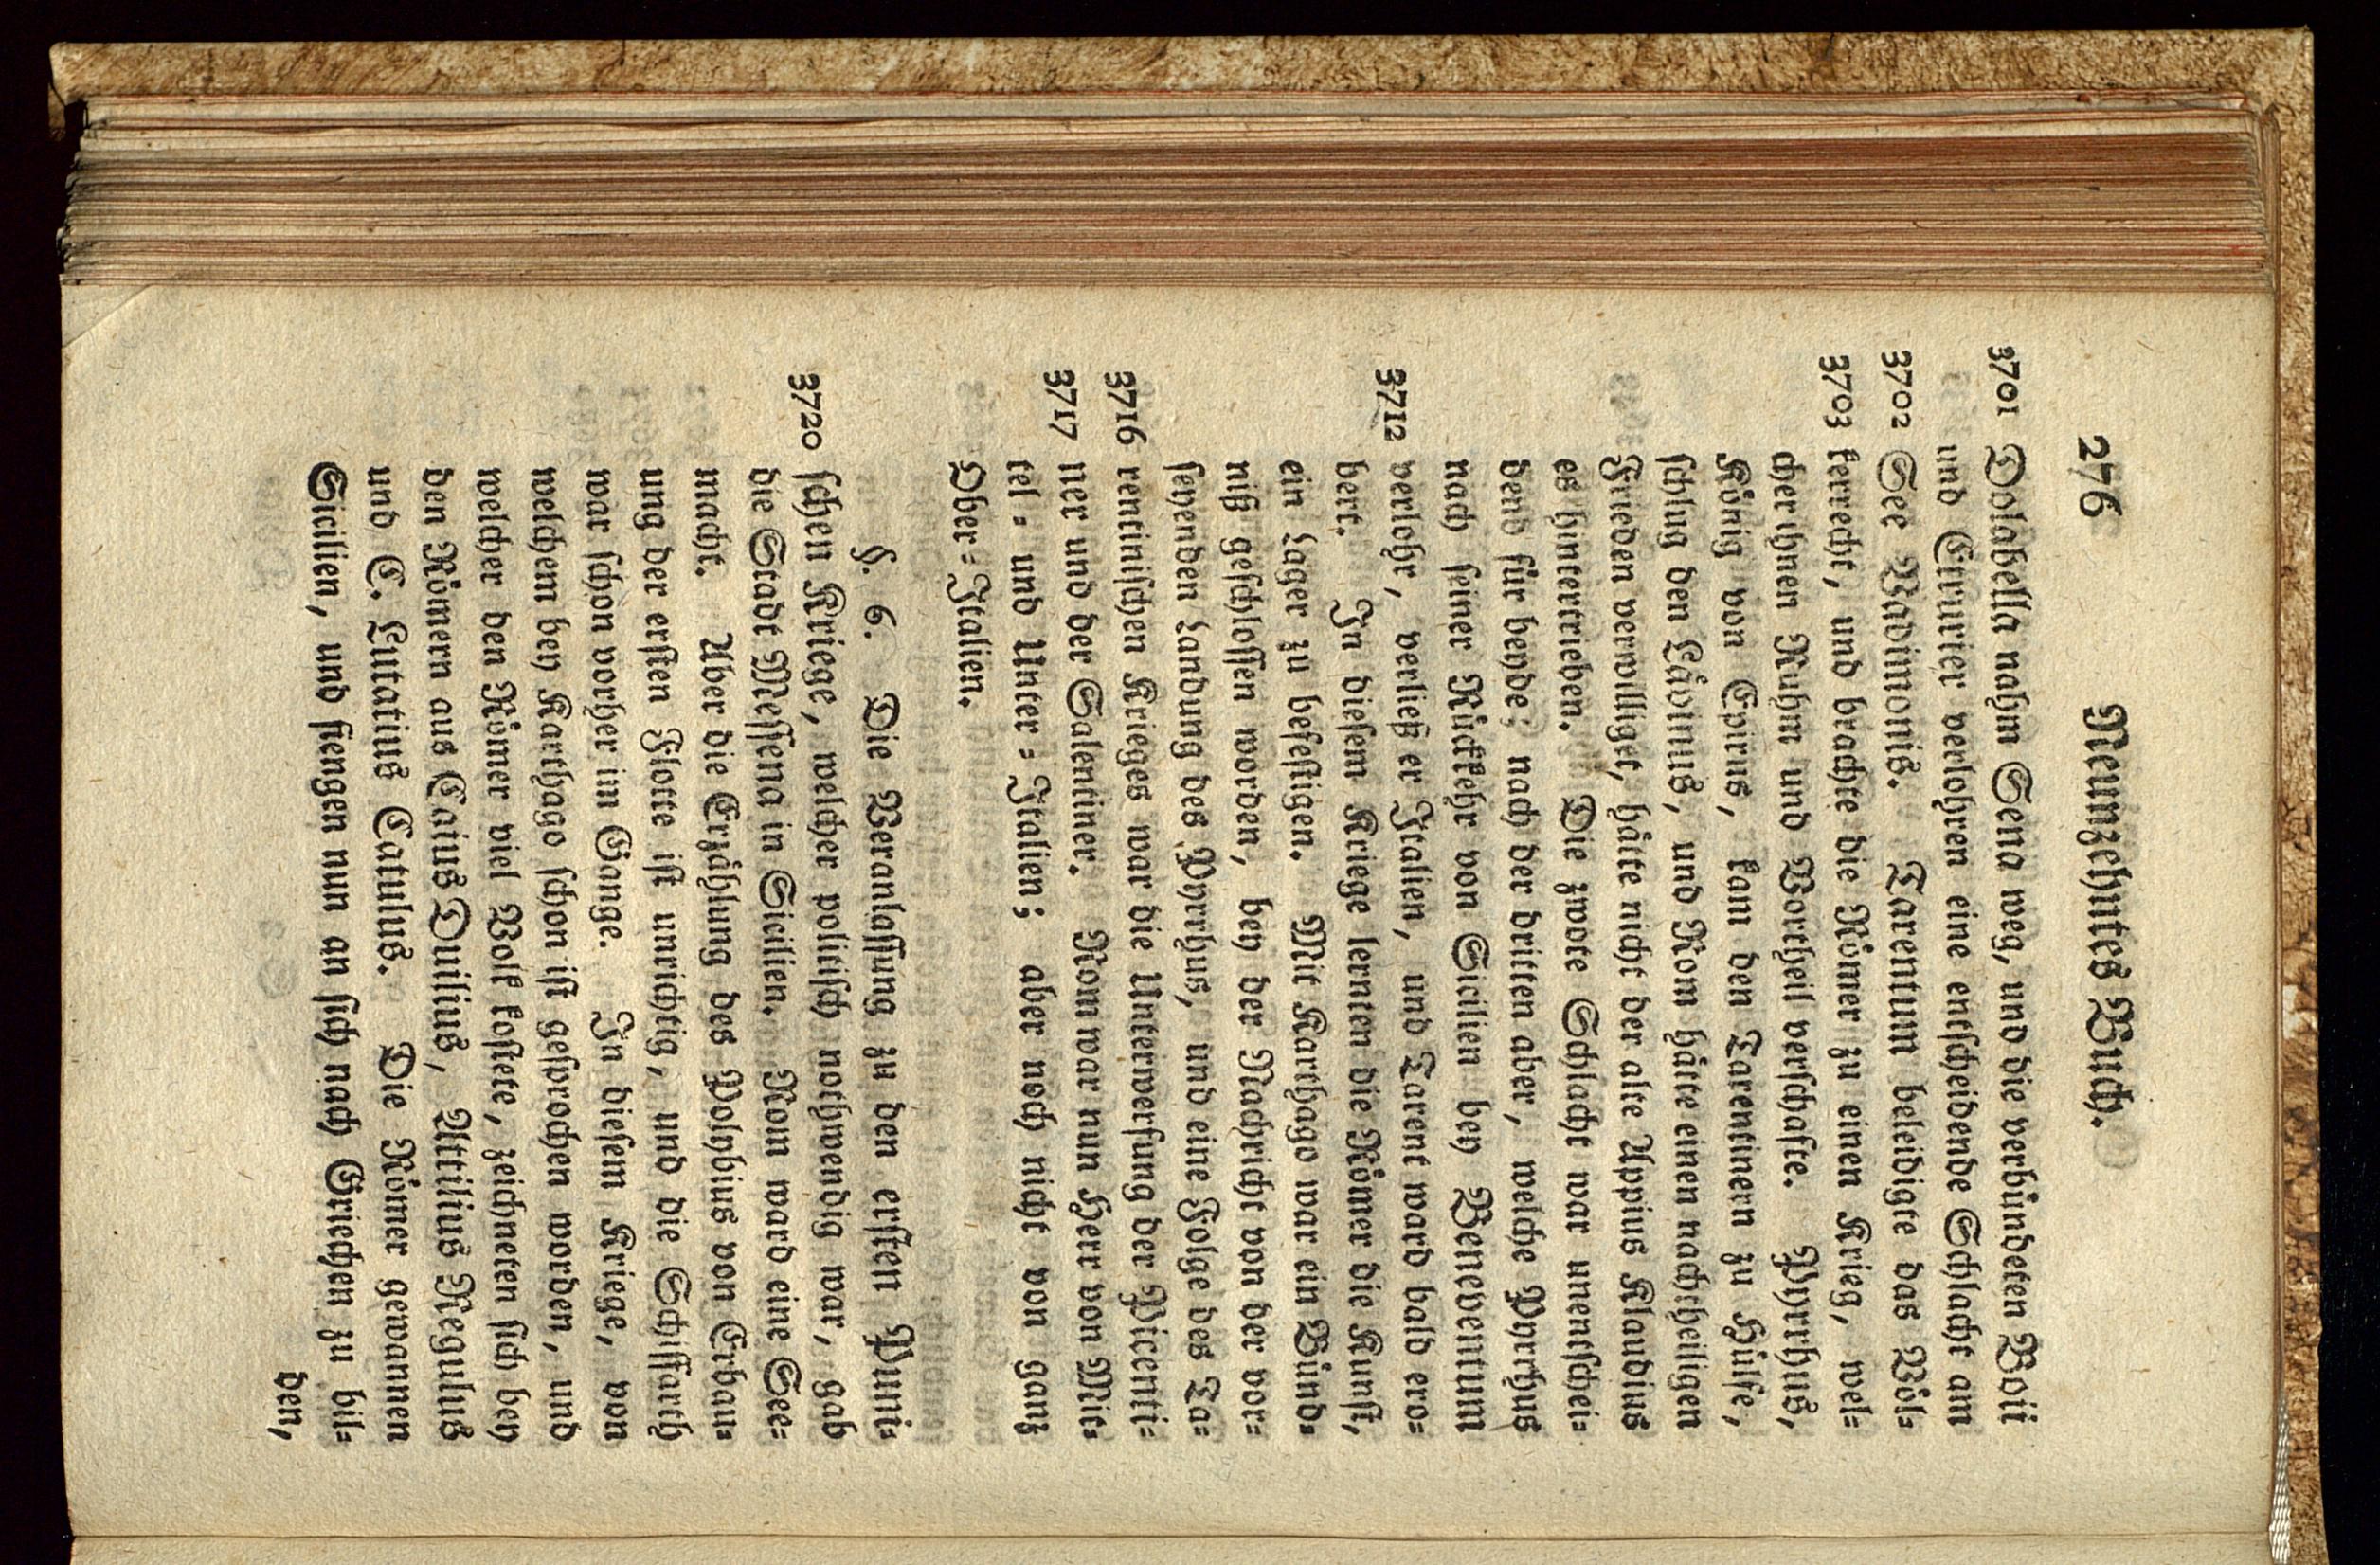 276 Neunzehntes Buch.
3701 Dolabella nahm Sena weg, und die verbündeten Boii
und Etrurier verlohren eine entscheidende Schlacht am
3702 See Vadimonis. Tarentum beleidigte das Völ=
3703 kerrecht, und brachte die Römer zu einen Krieg, wel=
cher ihnen Ruhm und Vortheil verschafte. Pyrrhus,
König von Epirus, kam den Tarentinern zu Hülfe,
schlug den Lävinus, und Rom hätte einen nachtheiligen
Frieden verwilliget, hätte nicht der alte Appius Klaudius
es hintertrieben. Die zwote Schlacht war unentschei=
dend für beyde; nach der dritten aber, welche Pyrrhus
nach seiner Rückkehr von Sicilien bey Beneventum
3712 verlohr, verließ er Italien, und Tarent ward bald ero=
bert. In diesem Kriege lernten die Römer die Kunst,
ein Lager zu befestigen. Mit Karthago war ein Bünd=
niß geschlossen worden, bey der Nachricht von der vor=
seyenden Landung des Pyrrhus, und eine Folge des Ta=
3716 rentinischen Krieges war die Unterwerfung der Picenti=
3717 ner und der Salentiner. Rom war nun Herr von Mit=
tel= und Unter=Italien; aber noch nicht von ganz
Ober=Italien.
§. 6. Die Veranlassung zu den ersten Puni=
3720 schen Kriege, welcher politisch nothwendig war, gab
die Stadt Messena in Sicilien. Rom ward eine See=
macht. Aber die Erzählung des Polybius von Erbau=
ung der ersten Flotte ist unrichtig, und die Schiffarth
war schon vorher im Gange. In diesem Kriege, von
welchem bey Karthago schon ist gesprochen worden, und
welcher den Römer viel Volk kostete, zeichneten sich bey
den Römern aus Caius Duilius, Attilius Regulus
und C. Lutatius Catulus. Die Römer gewannen
Sicilien, und fiengen nun an sich nach Griechen zu bil=
den,